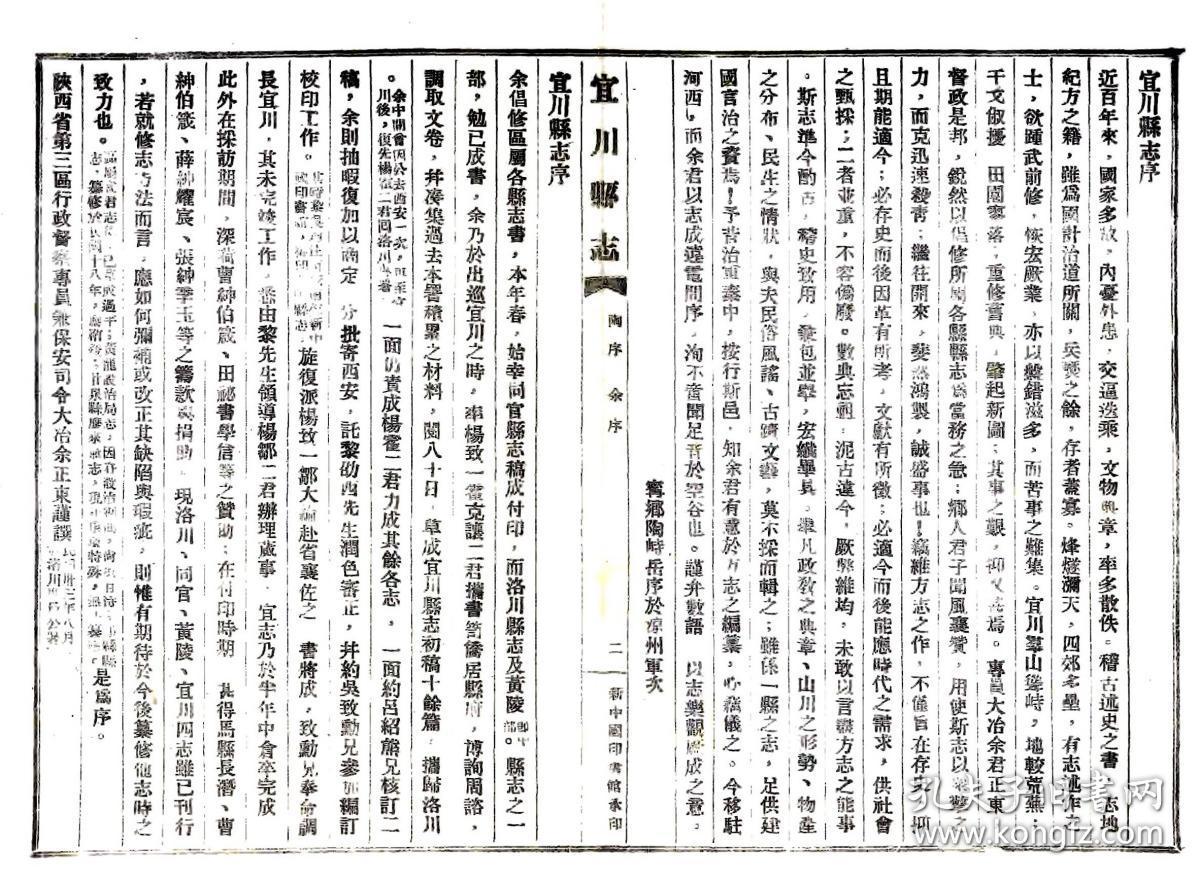 宜川縣志序
近百年來，國家多故，內憂外患，交逼迭乘，文物典章，率多散佚。稽古述史之書　志地
紀方之籍，雖爲國計治道所關，兵燹之餘，存者蓋寡。烽燧瀰天，四郊多壘，有志述作之
士，欲踵武前修，恢宏厥業，亦以盤錯滋多，而苦事之難集。宜川羣山聳峙，地較荒蕪；
干戈俶擾　田園寥落，重修舊典，肇起新圖；其事之艱，抑又甚焉。專員大冶余君正東
督政是邦，銳然以倡修所屬各縣縣志爲當務之急；鄉人君子聞風襄贊，用使斯志以衆擎之
力，而克迅速殺青；繼往開來，斐然鴻製，誠盛事也！竊維方志之作，不僅旨在存史，
且期能適今；必存史而後因革有所考，文獻有所徵；必適今而後能應時代之需求，供社會
之甄採；二者並重，不容偏廢。數典忘祖；泥古違今，厥弊維均，未敢以言盡方志之能事
。斯志準今酌古，稽史致用，彙包並舉，宏纖畢具。舉凡政敎之典章、山川之形勢、物產
之分布、民生之情狀，與夫民俗風謠、古蹟文藝，莫不採而輯之；雖係一縣之志，足供建
國言治之資焉！予昔治軍秦中，按行斯邑，知余君有意於方志之編纂，心竊儀之。今移駐
河西，而余君以志成遠電問序，洵不啻聞足音於空谷也。謹弁數語　以志樂觀厥成之意。
寗鄉陶峙岳序於涼州軍次
宜川縣志
陶序　余序
二
新中國印書館承印
宜川縣志序
余倡修區屬各縣志書，本年春，始幸同官縣志稿成付印，而洛川縣志及黃陵縣志之一
部，勉已成書，余乃於出巡宜川之時，率楊致一霍克讓二君攜書笥僑居縣府，博詢周諮，
調取文卷，幷湊集過去本署積累之材料，閱八十日，草成宜川縣志初稿十餘篇，攜歸洛川
。余中間曾因公去西安一次，
川後，復先楊霍二君回洛川
一面仍責成楊霍二君力成其餘各志，一面約呂紹熊兄核訂二
稿，余則抽暇復加以商定　分批寄西安，託黎劭西先生潤色審正，幷約吳致勳兄參加編訂
校印工作。
旋復派楊致一鄒大赴省襄佐之　書將成，致勳兄奉命調
長宜川，其未完竣工作，悉由黎先生領導楊鄒二君辦理蕆事，宜志乃於半年中倉卒完成
此外在採訪期間，深荷曹紳伯箴、田祕書學信等之贊助；在付印時期　甚得馬縣長潛、曹
紳伯箴、薛紳耀宸、張紳季玉等之籌款捐助。現洛川、同官、黃陵、宜川四志雖已刊行
，若就修志方法而言，應如何彌補或改正其缺陷與瑕疵，則惟有期待於今後纂修他志時之
致力也。
是爲序。
陝西省第三區行政督察專員兼保安司令大冶余正東謹譔
孔夫子旧书网
www.kongfz.com